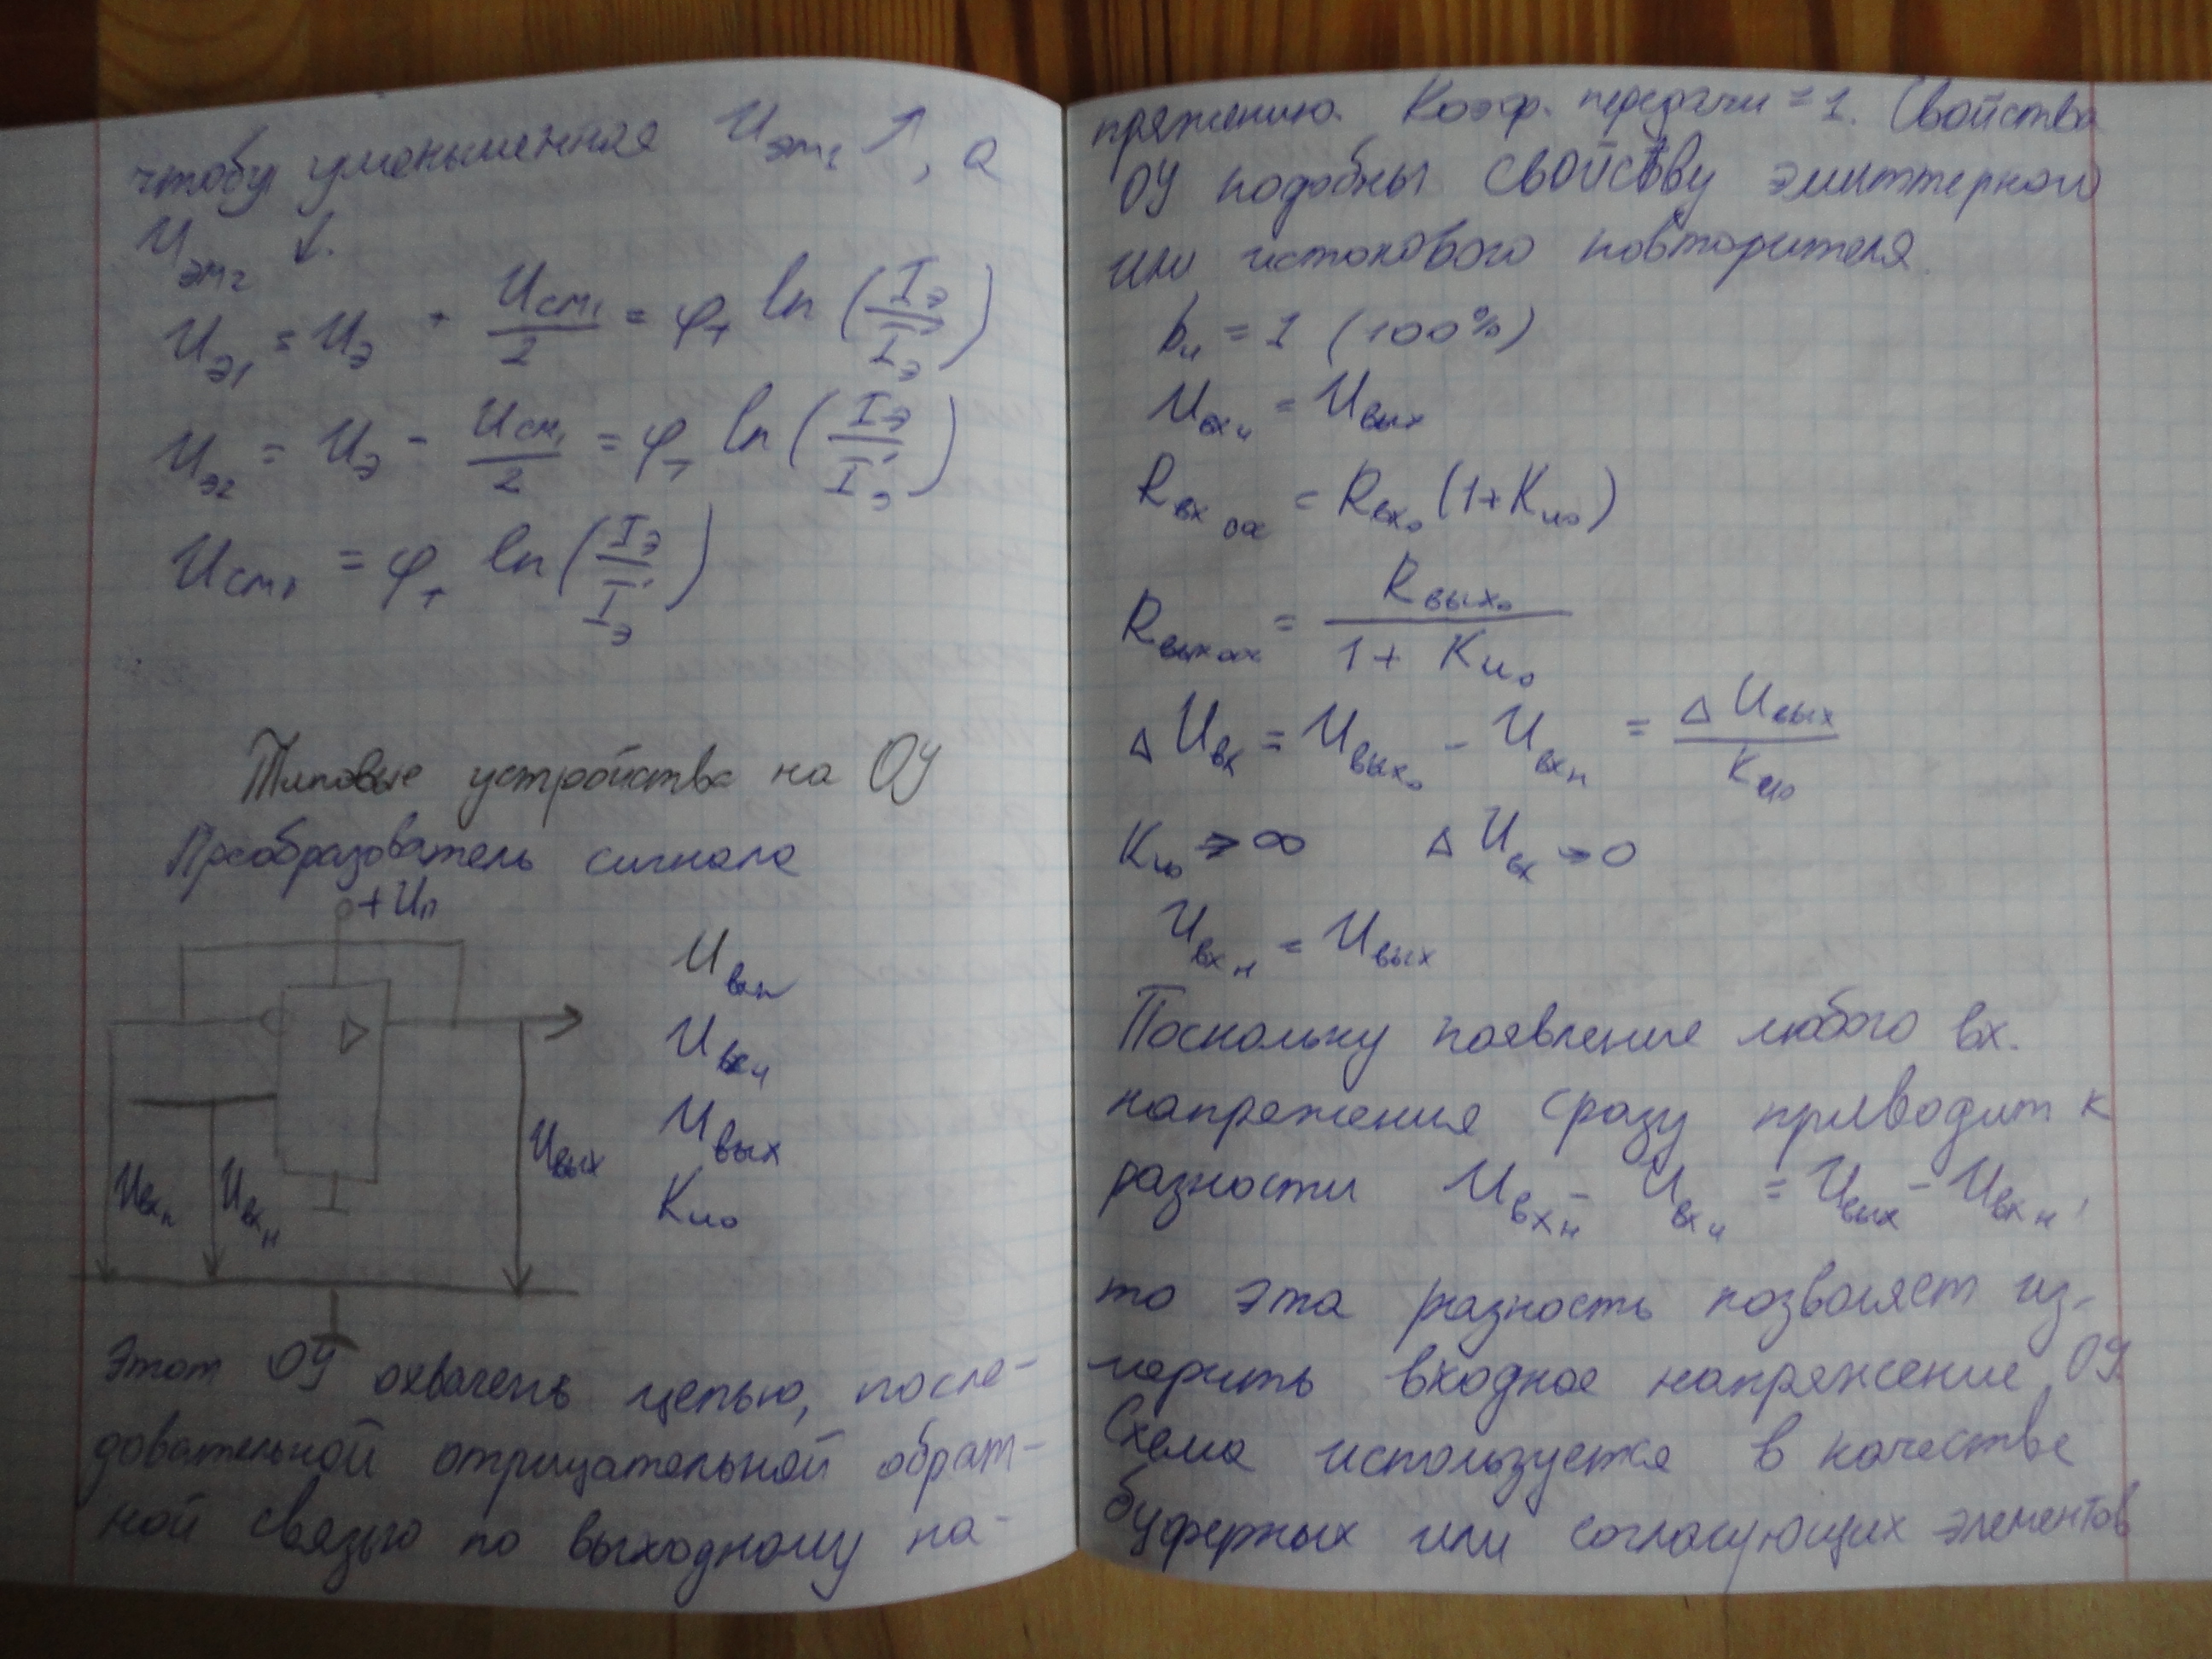 чтобы уменьшенная U эм₁ ↑, а
U эм₂ ↓.
Uэ₁ = Uэ + Uсм₁/2 = φт ln (Iэ/I'э)
Uэ₂ = Uэ - Uсм₁/2 = φт ln (Iэ/I'э)
Uсм₁ = φт ln (Iэ/I'э)
Типовые устройства на ОУ
Преобразователь сигнала
+Uп
Uвхп
Uвхи
Uвых
Kио
Uвхп
Uвхн
Uвых
Этот ОУ охвачень цепью, после-
довательной отрицательной обрат-
ной связью по выходному на-
пряжению. Коэф. передачи = 1. Свойства
ОУ подобны свойству эмиттерного
или истокового повторителя.
bи = 1 (100%)
Uвхи = Uвых
Rвх ос = Rвх₀ (1+Kио)
Rвых ос = Rвых₀/(1 + Kио)
ΔUвх = Uвых₀ - Uвхн = ΔUвых/Kио
Kио → ∞ ΔUвх → 0
Uвхн = Uвых
Поскольку появление любого вх.
напряжения сразу приводит к
разности Uвхн - Uвхи = Uвых - Uвхн,
то эта разность позволяет из-
мерить входное напряжение ОУ.
Схема используется в качестве
буферных или согласующих элементов